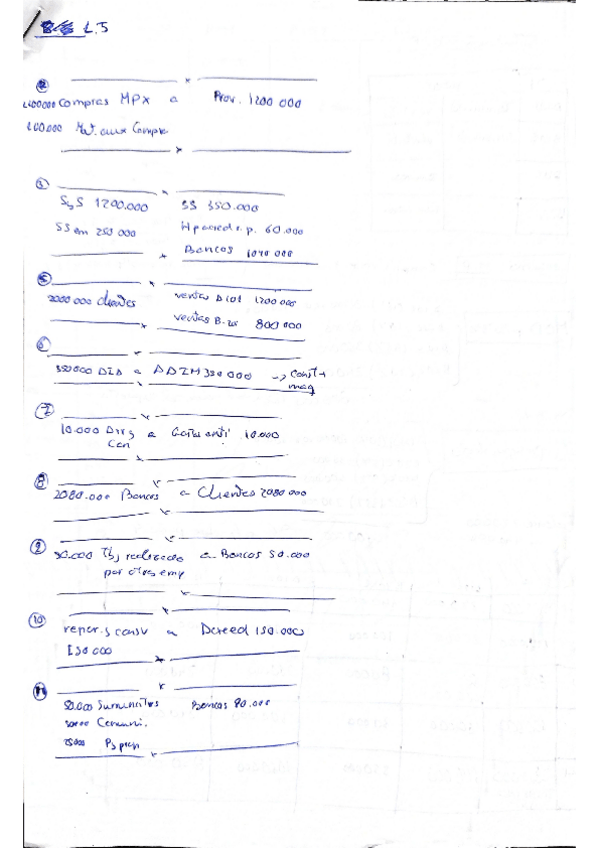 1.5
②
Compras MPX a Prov. 1200 000
200.000 Mat. aux Compra
③
SyS 1200.000 SS 350.000
SS em 250 000 H p acreed r.p. 60.000
Bancos 1040 000
⑤
2000 000 Clientes ventas 1200 000
ventas 800 000
⑥
350000 a 350 000 -> Const +
maq
⑦
10.000 a 10.000
⑧
2080.000 Bancos a Clientes 2080 000
⑨
50.000 Tbj realizado a Bancos 50.000
por otras emp
⑩
repar. y consv a Dcreed 150.000
150 000
⑪
50.000 Suministros Bancos 90.000